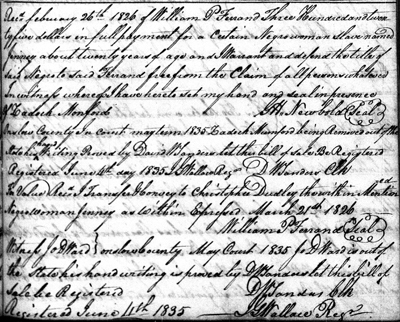 Rec'd February 26th 1826 of William P Ferrand Three Hundred and twen
ty five dollars in full payment for a Certain Negro woman Slave named
Jenney about twenty years of age and I Warrant and defend the title of
said Negro to said Ferrand free from the Claim of all persons whatever
in witness whereof I have hereto set my hand and seal in presence
of Zadock Monford J H Newbold {Seal}
Onslow County In Court may term 1835 Zadock Monford being Removed out of the
State his writing Proved by David W Sanders let this bill of sale be Registered
Registered June 11th day 1835 J Wallace Regr D W Sanders Clk
For Value Recd I Transfer & convey to Christopher Dudley the within Mention ed
Negro woman Jenney as within Expressed March 21st 1826
William P Ferrand {Seal}
Witness Jo D Ward } Onslow County May Court 1835 Jo D Ward is out of
the State his hand writing is proved by D W Sanders let this bill of
sale be Registered D W Sandas Clk
Registered June 11th 1835 J Wallace Regr